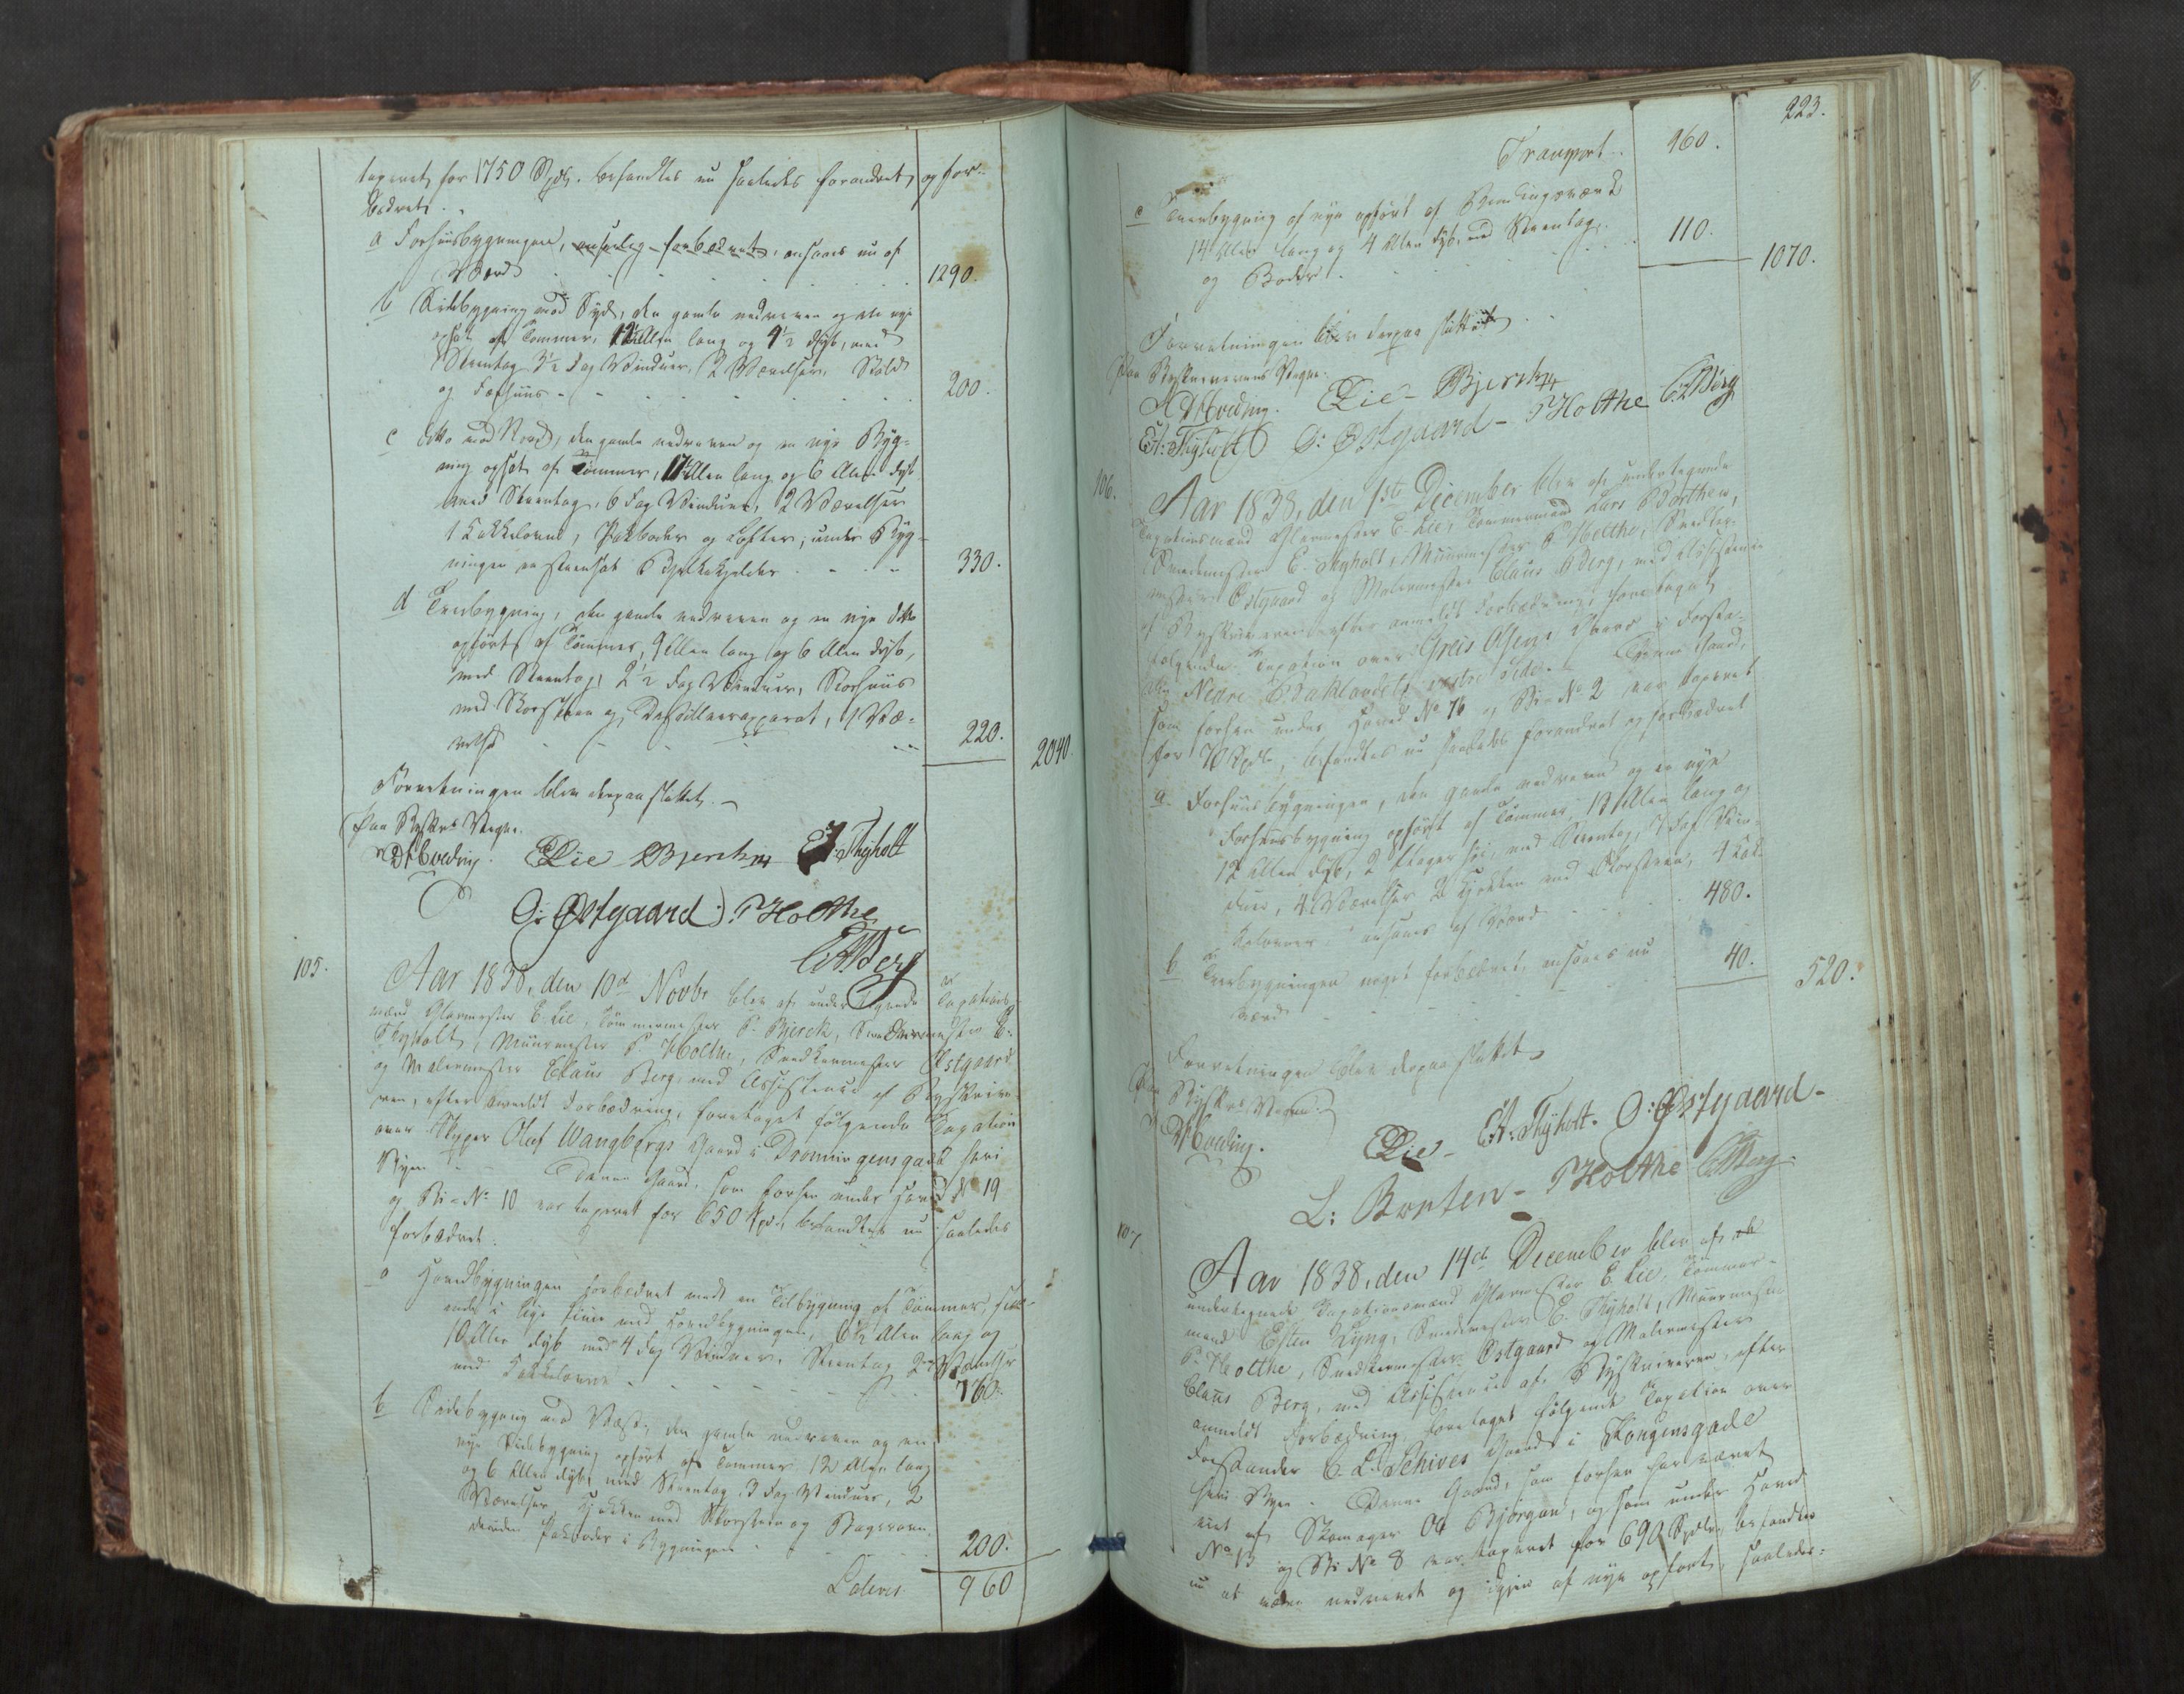 taxeret for 1750 Spdl. befandtes nu saaledes forandret og for-
bedret.
a Forhuusbygningen, anseelig forbedret, ansaaes nu af
Værd 1290.
b Sidebygning mod Syd, den gamle nedreven og en nye
opsat af Tømmer, Alen lang og 4½ dyb, med
Steentag 3½ Fag Vinduer, 2 Værelser, Stald
og Fæhuus 200.
c ditto mod Nord, den gamle nedreven og en nye Byg-
ning opsat af Tømmer, Alen lang og 6 Alen dyb
med Steentag, 6 Fag Vinduer, 2 Værelser
1 Kakkelovn, Pakboder og Lofter, under Byg-
ningen en steensat Kjelder 330.
d Tverbygning, den gamle nedreven og en nye ditto
opført af Tømmer, 9 Alen lang og 6 Alen dyb,
med Steentag, 2½ Fag Vinduer,
med Skorsteen og Destilleerapparat, 1 Væ-
relse 220. 2040.
Forretningen blev derpaa sluttet.
Paa Byskr. Vegne.
Hveding. ELie PBjerck EA: Thyholt
O: Østgaard PHolthe
CABerg
105.
Aar 1838, den 10de Novbr blev af undertegnede Taxations-
mænd Glarmester E. Lie, Tømmermester P. Bjerck, Smedemester E.
Thyholt, Muurmester P. Holthe, Snedkermester Østgaard
og Malermester Claus Berg, med Assistence af Byskrive-
ren, efter anmeldt Forbedring, foretaget følgende Taxation
over Skipper Oluf Wangbergs Gaard i Dronningensgade heri
Byen. Denne Gaard, som forhen under Hoved No 19
og Bi-No 10 var taxeret for 650 Spdl., befandtes nu saaledes
forbedret:
a Hovedbygningen forbedret med en Tilbygning af Tømmer,
i lige Linie med Hovedbygningen, 6½ Alen lang og
10 Alen dyb med 4 Fag Vinduer, Steentag 2 Værelser
med Kakkelovne 760.
b Sidebygning mod Vest, den gamle nedreven og en
nye Sidebygning opført af Tømmer 12 Alen lang
og 6 Alen dyb, med Steentag, 3 Fag Vinduer, 2
Værelser, Kjøkken med Skorsteen og Bagerovn,
Pakboder i Bygningen 200.
Lateris 960
223.
Transport 960.
c Tverbygning af nye opført af Bindingsværk
14 Alen lang og 4 Alen dyb, med Steentag
og Boder 110. 1070.
Forretningen blev derpaa sluttet
Paa Byskriverens Vegne.
Hveding. ELie PBjerck
EA: Thyholt O: Østgaard PHolthe CABerg
106.
Aar 1838, den 1ste December blev af undertegnede
Taxationsmænd Glarmester E. Lie, Tømmermand Lars Borthen,
Smedemester E. Thyholt, Muurmester P. Holthe, Snedker-
mester Østgaard og Malermester Claus Berg, med Assistence
af Byskriveren efter anmeldt Forbedring, foretaget
følgende Taxation over Greis Olsens Gaard i Forsta-
den Nedre Baklandets vestre Side. Denne Gaard,
som forhen under Hoved No 76 og Bi-No 2 var taxeret
for Spdl., befandtes nu saaledes forandret og forbedret
a. Forhuusbygningen, den gamle nedreven og en nye
Forhuusbygning opført af Tømmer, 13 Alen lang og
12 Alen dyb, 2 Etager høi, med Steentag, 7 Fag Vin-
duer, 4 Værelser 2 Kjøkken med Skorsteen, 4 Kak-
kelovne, ansaaes af Værd 480.
b Tverbygningen noget forbedret, ansaaes nu
Værd 40. 520.
Forretningen blev derpaa sluttet
Paa Byskr. Vegne.
Hveding.
ELie EA: Thyholt. O: Østgaard
L: Borten PHolthe CABerg
107
Aar 1838, den 14de December blev af
undertegnede Taxationsmænd Glarmester E. Lie, Tømmer-
mand Esten Lyng, Smedemester E. Thyholt, Muurmester
P. Holthe, Snedkermester Østgaard og Malermester
Claus Berg, med Assistence af Byskriveren, efter
anmeldt Forbedring, foretaget følgende Taxation over
Forstander C. L. Schives Gaard i Kongensgade
heri Byen. Denne Gaard, som forhen har været
eiet af Skomager Ole Bjørgan, og som under Hoved
No 13 og Bi No 8 var taxeret for 690 Spdlr., befandtes
nu at være nedrevet og igjen af nye opført, saaledes: